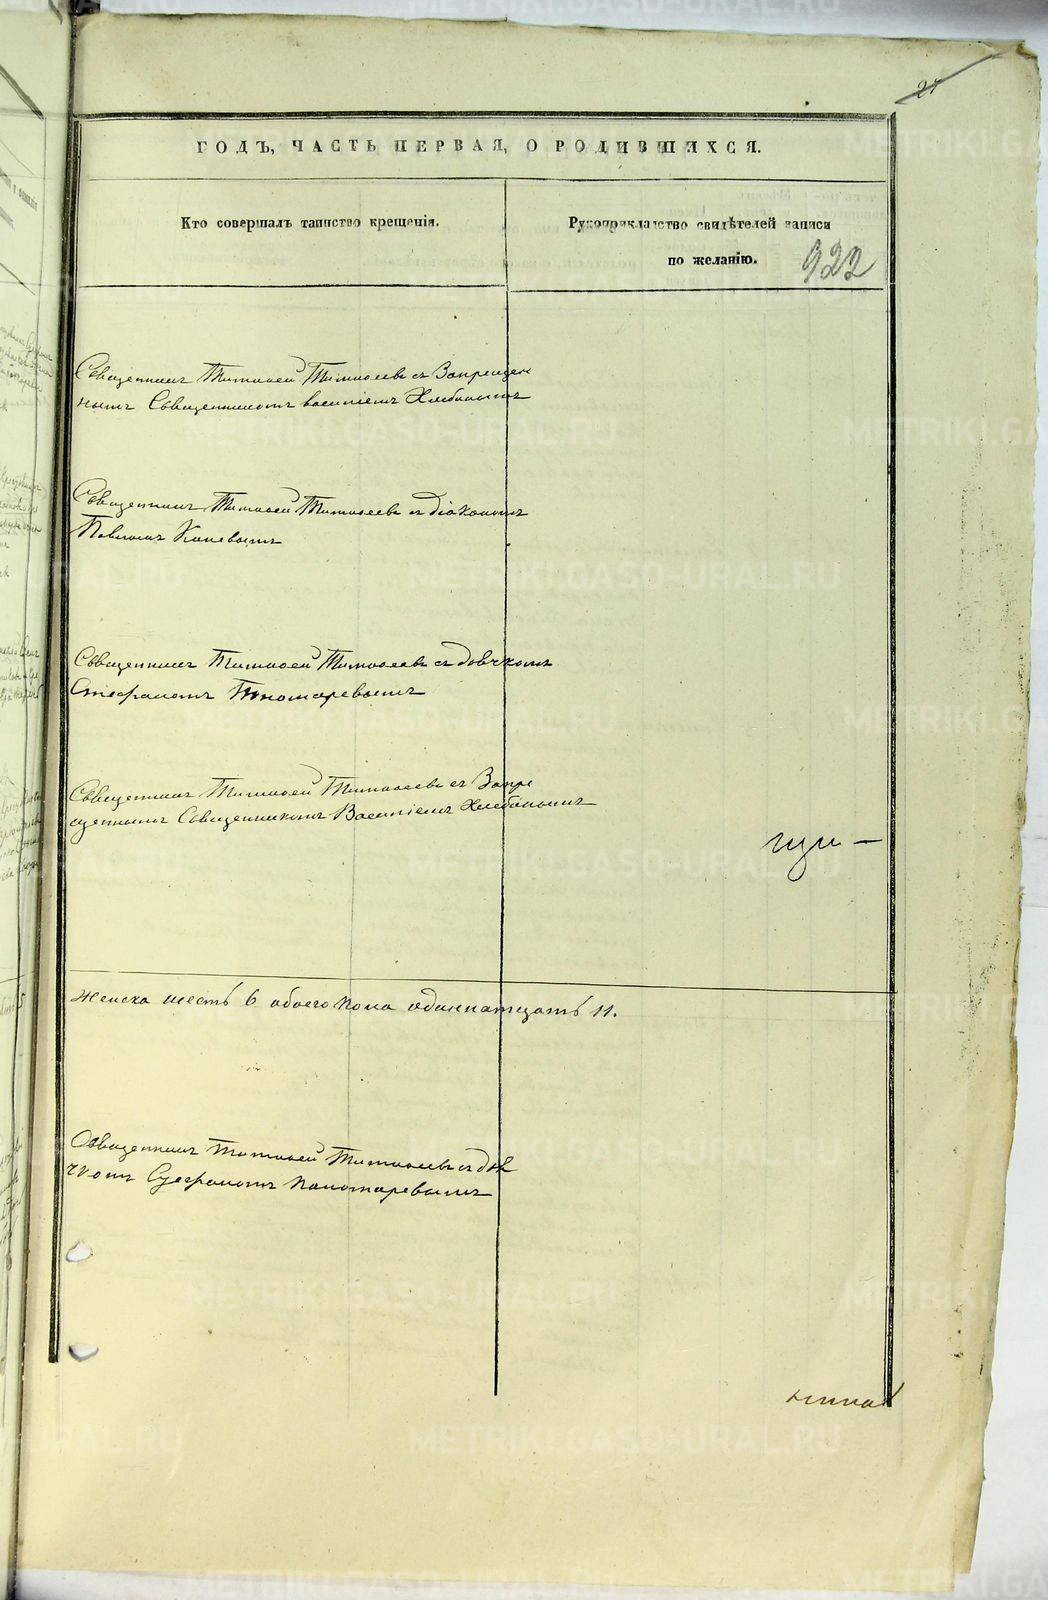 21
ГОДЪ, ЧАСТЬ ПЕРВАЯ, О РОДИВШИХСЯ.
Кто совершалъ таинство крещенія.
Рукоприкладство свидѣтелей записи
по желанію.
922
Священникъ Тимофей Тимофеевъ съ Запрещен
нымъ Священникомъ Василіемъ Хлебинымъ
Священникъ Тимофей Тимофеевъ съ діакономъ
Павломъ Коневымъ
Священникъ Тимофей Тимофеевъ съ дьячкомъ
Стефаномъ Пономаревымъ
Священникъ Тимофей Тимофеевъ съ Запре
щеннымъ Священникомъ Василіемъ Хлебинымъ
женска шесть 6 обоего пола одиннатцать 11.
Священникъ Тимофей Тимофеевъ съ дья
чкомъ Стефаномъ Пономаревымъ
METRIKI.GASO-URAL.RU